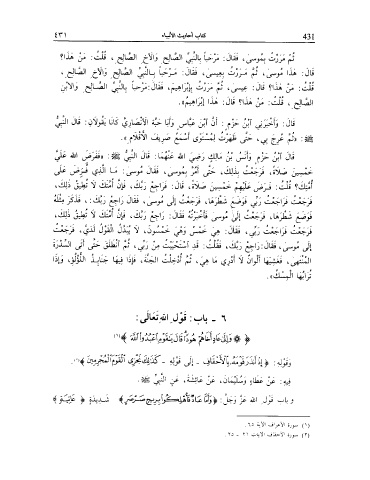 ٤٣١ كتاب أحاديث الأنبياء 431
ثُمَّ مَرَرْتُ بِمُوسَى، فَقَالَ: مَرْحَباً بِالنَّبِيِّ الصَّالِحِ وَالأَخِ الصَّالِحِ، قُلْتُ: مَنْ هَذَا؟
قَالَ: هَذَا مُوسَى، ثُمَّ مَرَرْتُ بِعِيسَى، فَقَالَ: مَرْحَباً بِالنَّبِيِّ الصَّالِحِ وَالأَخِ الصَّالِحِ،
قُلْتُ: مَنْ هَذَا؟ قَالَ: عِيسَى، ثُمَّ مَرَرْتُ بِإِبْرَاهِيمَ، فَقَالَ: مَرْحَباً بِالنَّبِيِّ الصَّالِحِ وَالابْنِ
الصَّالِحِ، قُلْتُ: مَنْ هَذَا؟ قَالَ: هَذَا إِبْرَاهِيمُ».
قَالَ: وَأَخْبَرَنِي ابْنُ حَزْمٍ: أَنَّ ابْنَ عَبَّاسٍ وَأَبَا حَيَّةَ الأَنْصَارِيَّ كَانَا يَقُولَانِ: قَالَ النَّبِيُّ
ﷺ: «ثُمَّ عُرِجَ بِي، حَتَّى ظَهَرْتُ لِمُسْتَوًى أَسْمَعُ صَرِيفَ الأَقْلَامِ».
قَالَ ابْنُ حَزْمٍ وَأَنَسُ بْنُ مَالِكٍ رَضِيَ اللهُ عَنْهُمَا: قَالَ النَّبِيُّ ﷺ: «فَفَرَضَ اللهُ عَلَيَّ
خَمْسِينَ صَلَاةً، فَرَجَعْتُ بِذَلِكَ، حَتَّى أَمُرَّ بِمُوسَى، فَقَالَ مُوسَى: مَا الَّذِي فُرِضَ عَلَى
أُمَّتِكَ؟ قُلْتُ: فَرَضَ عَلَيْهِمْ خَمْسِينَ صَلَاةً، قَالَ: فَرَاجِعْ رَبَّكَ، فَإِنَّ أُمَّتَكَ لَا تُطِيقُ ذَلِكَ،
فَرَجَعْتُ فَرَاجَعْتُ رَبِّي فَوَضَعَ شَطْرَهَا، فَرَجَعْتُ إِلَى مُوسَى، فَقَالَ رَاجِعْ رَبَّكَ: فَذَكَرَ مِثْلَهُ
فَوَضَعَ شَطْرَهَا، فَرَجَعْتُ إِلَى مُوسَى فَأَخْبَرْتُهُ فَقَالَ: رَاجِعْ رَبَّكَ، فَإِنَّ أُمَّتَكَ لَا تُطِيقُ ذَلِكَ،
فَرَجَعْتُ فَرَاجَعْتُ رَبِّي، فَقَالَ: هِيَ خَمْسٌ وَهِيَ خَمْسُونَ، لَا يُبَدَّلُ الْقَوْلُ لَدَيَّ، فَرَجَعْتُ
إِلَى مُوسَى، فَقَالَ: رَاجِعْ رَبَّكَ، فَقُلْتُ: قَدِ اسْتَحْيَيْتُ مِنْ رَبِّي، ثُمَّ انْطَلَقَ حَتَّى أَتَى السِّدْرَةَ
الْمُنْتَهَى، فَغَشِيَهَا أَلْوَانٌ لَا أَدْرِي مَا هِيَ، ثُمَّ أُدْخِلْتُ الجَنَّةَ، فَإِذَا فِيهَا جَنَابِذُ اللُّؤْلُؤِ، وَإِذَا
تُرَابُهَا الْمِسْكُ».
٦ - باب: قَوْلِ اللهِ تَعَالَى:
﴿ وَإِلَى عَادٍ أَخَاهُمْ هُودًا قَالَ يَٰقَوْمِ اعْبُدُوا اللَّهَ ﴾(١)
وَقَوْلِهِ: ﴿ إِذْ أَنذَرَ قَوْمَهُ بِالْأَحْقَافِ - إِلَى قَوْلِهِ - كَذَٰلِكَ نَجْزِي الْقَوْمَ الْمُجْرِمِينَ ﴾(٢).
فِيهِ: عَنْ عَطَاءٍ وَسُلَيْمَانَ، عَنْ عَائِشَةَ، عَنِ النَّبِيِّ ﷺ.
وباب قَوْلِ اللهِ عَزَّ وَجَلَّ: ﴿ وَأَمَّا عَادٌ فَأُهْلِكُوا بِرِيحٍ صَرْصَرٍ ﴾ شَدِيدَةٍ ﴿ عَاتِيَةٍ ﴾
(١) سورة الأعراف الآية ٦٥.
(٢) سورة الأحقاف الآيات ٢١ - ٢٥.